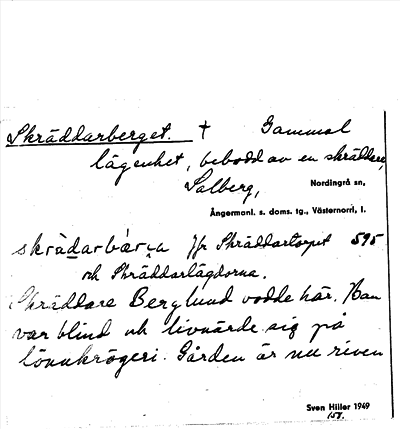 Skräddarberget. † Gammal
lägenhet, bebodd av en skräddare,
Salberg,
Nordingrå sn,
Ångermanl. s. doms. tg., Västernorrl. l.
skrädarbärⱼa Jfr Skräddartorpet 595
och Skräddarlägdorna.
Skräddare Berglund bodde här. Han
var blind och livnärde sig på
lönnkrögeri. Gården är nu riven
Sven Hiller 1949